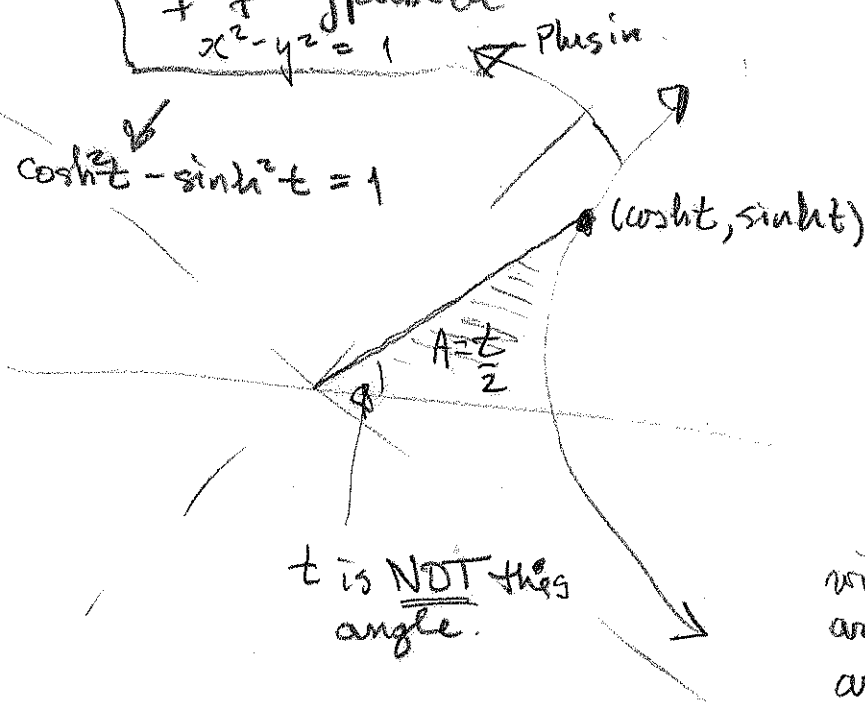 x² - y² = 1
Plug in
cosh²t - sinh²t = 1
(cosht, sinht)
A = t/2
t is NOT this
angle.